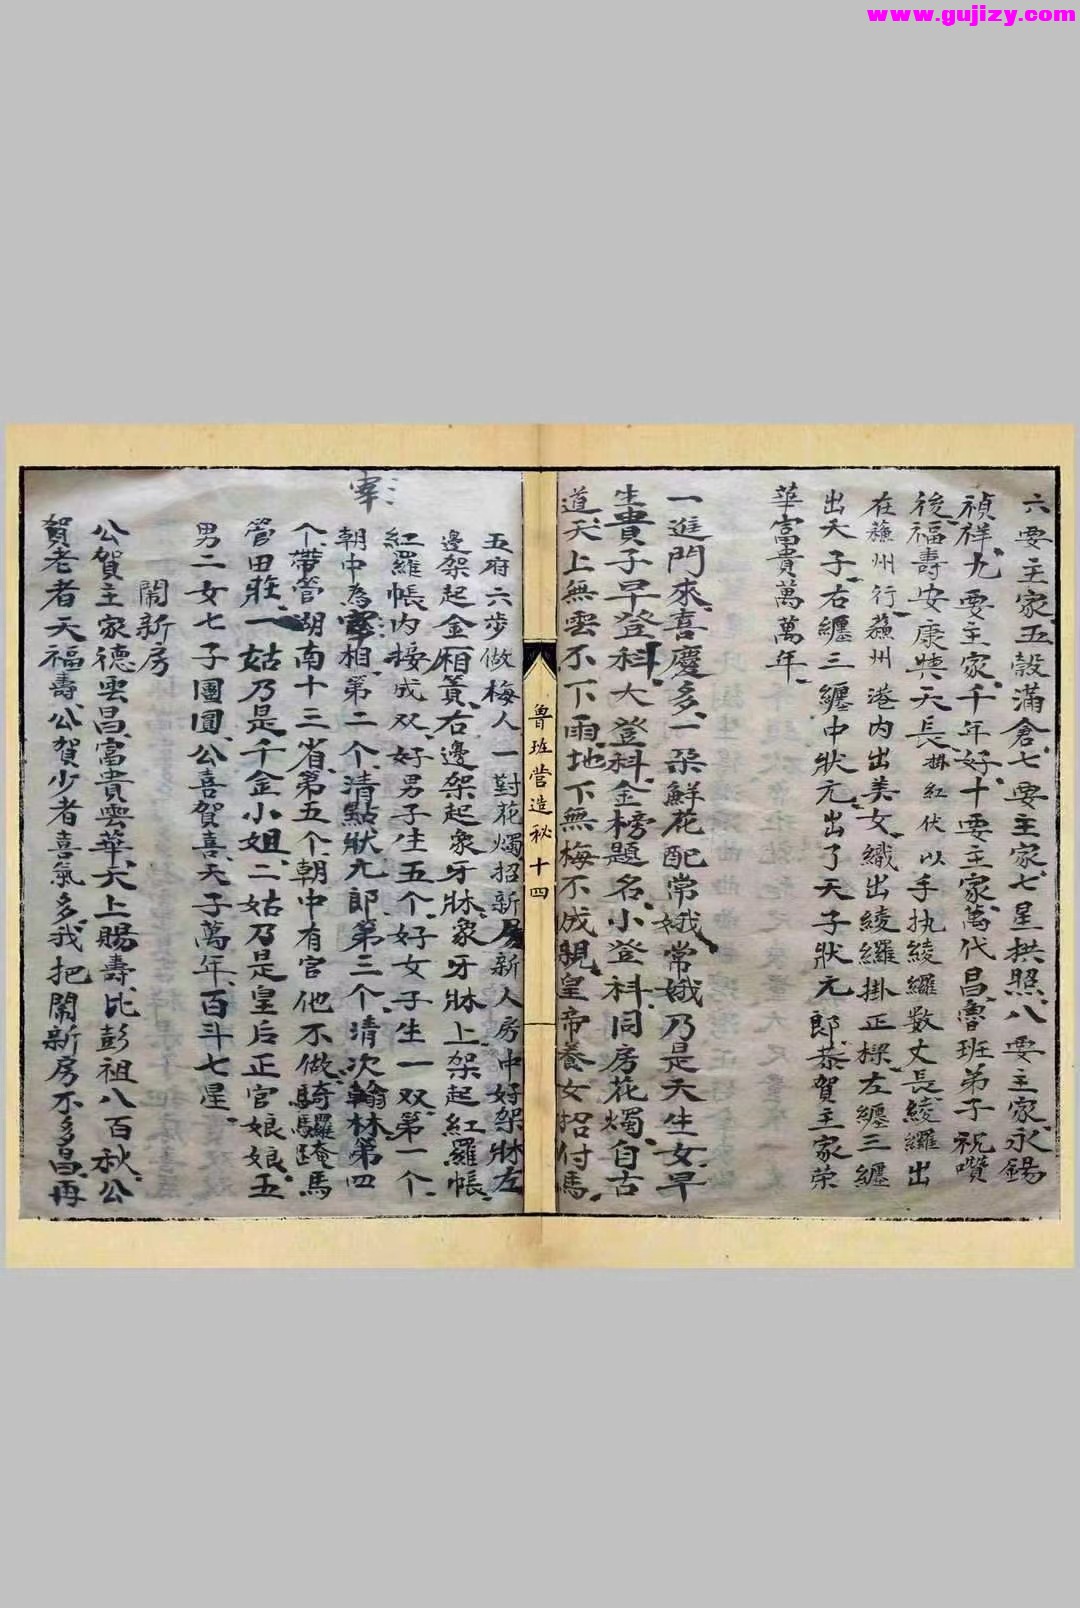 www.gujizy.com
六要主家、五穀滿倉、七要主家、七星拱照、八要主家、永錫
禎祥、九要主家、千年好、十要主家、萬代昌、魯班弟子祝嘖
後、福壽安康與天長 掛紅伏以手执綾羅数丈長、綾羅出
在蘓州行、蘓州港内出美女、織出綾羅掛正樑、左纏三纏
出天子、右纏三纏中狀元、出了天子狀元郎、恭賀主家荣
華富貴萬萬年、
一進門來、喜慶多、一朶鮮花配常娥、常娥乃是天生女、早
生貴子早登科、大登科、金榜題名、小登科、同房花燭、自古
道、天上無雲不下雨、地下無梅不成親、皇帝養女招付馬、
魯班营造秘 十四
五府六步做梅人一對花燭、招新房、新人房中好架牀、左
邊架起金廂簀、右邊架起象牙牀、象牙牀上架起紅羅帳、
紅羅帳内接成双、好男子生五个、好女子生一双、第一个、
宰
朝中為宰相、第二个、清點狀元郎、第三个、清次翰林、第四
个、带管湖南十三省、第五个、朝中有官他不做、騎騾馬
管田莊、一姑乃是千金小姐、二姑乃是皇后正官娘娘、五
男二女七子團圓、公喜賀喜、天子萬年、百斗七星、
鬧新房
公賀主家德雲昌、富貴雲華、天上賜壽、比彭祖八百秋、公
賀老者天福壽、公賀少者喜氣多、我把鬧新房不多昌、再